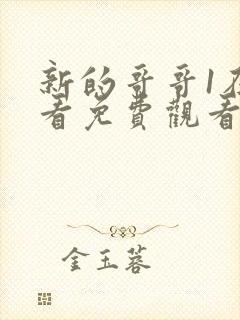 新的哥哥1
看免費觀看
金玉蓉